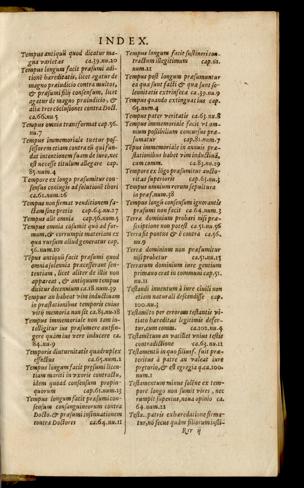 INDEX.
Tempus antiquū quod dicatur ma-
gna varietas ca.39.nu.20
Tempus longum facit præsumi adi-
tionē hæreditatis, licet agatur de
magno præiudicio contra multos,
& præsumi filiū consensum, licet
agatur de magno præiudicio, &
alia tres cōclusiones contra Doct.
ca.66.nu.5
Tempus omnia transformat cap.56.
nu.7
Tempus immemoriale tuetur pos-
sessorem etiam contra eū qui fun-
dat intentionem suam de iure, nec
est necesse titulum allegare cap.
85.num.4
Tempore ex longo præsumitur con-
sensus coniugis ad solutionē thori
ca.61.num.26
Tempus non firmat venditionem fa-
ctam sine pretio cap.64.nu.27
Tempus alit omnia cap.56.num.5
Tempus omnia casumit quo ad for-
mum, & corrumpit materiam ex
qua rursum aliud generatur cap.
56.num.10
Tēpus antiquū facit præsumi quod
omnia solennia præcesserunt sen-
tentiam, licet aliter de illis non
appareat, & antiquum tempus
dicitur decennium ca.18.num.39
Tempus an habeat vim inductinam
in præstationibus temporis cuius
vitō memoria non sit ca.83.nu.18
Tempus immemoriale tam non in-
telligitur ius præsumere aut fin-
gere quàm ius vere inducere ca.
84.nu.9
Temporis diuturnitatis quadruplex
effectus ca.65.num.1
Tempus longum facit præsumi licen-
tiam mariti in vxoris contractu,
idem quoad consensum propin-
quorum cap.61.num.15
Tempus longum facit præsumi con-
sensum consanguineorum contra
Docto. & præsumi insinuationem
contra Doctores ca.64.nu.11
Tempus longum facit sustineri con-
tractum illegitimum cap.61.
num.11
Tempus post longum præsumuntur
ea quæ sunt facti & quæ sunt so-
lennitatis extrinsecæ ca.39.nu.9
Tempus quando extinguat ius cap.
63.num.4
Tempus pater veritatis ca.63.nu.8
Tempus immemoriale facit vt om-
nium possibilium concursus præ-
sumatur cap.81.num.7
Tēpus immemoriale in annuis præ-
stationibus habet vim inductinā,
cum comm. ca.83.nu.19
Tempore ex lōgo præsumitur aucto-
ritas superioris cap.61.nu.4
Tempus omnium rerum sepultura
in præf.num.38
Tempus longum consensum ignorantis
præsumi non facit ca.64.num.3
Tempus longum dominium probari nisi præ-
scriptione non potest ca.51.nu.56
Terra sit pontus & è contra ca.56,
nu.9
Terræ dominium non præsumitur
nisi probetur ca.51.nu.13
Terrarum dominium iure gentium
primæuo erat in communi cap.51.
nu.11
Testandi inuentum à iure ciuili non
etiam naturali descendisse cap.
100.nu.3
Testamēto per errorem testantis vi-
tiato hæreditas legitimis defer-
tur, cum comm. ca.101.nu.4
Testamētum an vacillet vnius testis
contradictione ca.63.nu.11
Testamentū in quo filius f. suit præ-
teritus à patre an valeat iure
prætorio, & est egregia q.ca.100.
num.2
Testamentum minus solēne ex tem-
pore longo non sumit vires, nec
rumpit superius, noua opinio ca.
64.num.11
Testa. patris exhæredatione firma-
tur, nō secus quàm filiorum insti-
Rrr ij